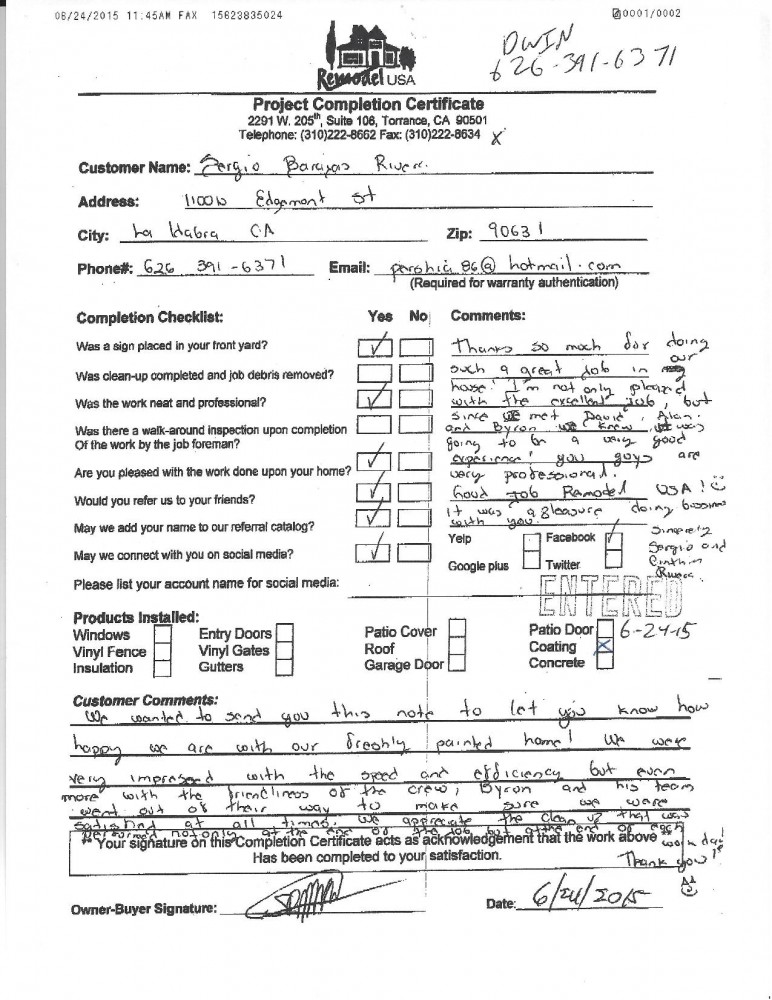 06/24/2015 11:45AM FAX 15623835024
0001/0002
DWIN
626-391-6371
Remodel USA
Project Completion Certificate
2291 W. 205th, Suite 106, Torrance, CA 90501
Telephone: (310)222-8662 Fax: (310)222-8634 X
Customer Name: Sergio Barajas Rivera
Address: 1100 W Edgemont St
City: La Habra CA Zip: 90631
Phone#: 626 391-6371 Email: 86@hotmail.com
(Required for warranty authentication)
Completion Checklist: Yes No Comments:
Was a sign placed in your front yard?
Was clean-up completed and job debris removed?
Was the work neat and professional?
Was there a walk-around inspection upon completion
Of the work by the job foreman?
Are you pleased with the work done upon your home?
Would you refer us to your friends?
May we add your name to our referral catalog?
May we connect with you on social media?
Please list your account name for social media:
Thanks so much for doing
such a great job in our
house! I'm not only pleased
with the excellent job, but
since we met David, Alan.
and Byron we knew it was
going to be a very good
experience! you guys are
very professional!
Good Job Remodel USA!
It was a pleasure doing bussines
with you.
Sincerely
Sergio and
Rivera.
Yelp Facebook
Google plus Twitter
ENTERED
6-24-15
Products Installed:
Windows Entry Doors Patio Cover Patio Door
Vinyl Fence Vinyl Gates Roof Coating
Insulation Gutters Garage Door Concrete
Customer Comments:
We wanted to send you this note to let you know how
happy we are with our freshly painted home! We were
very impressed with the speed and efficiency but even
more with the friendliness of the crew, Byron and his team
went out of their way to make sure we were
satisfied at all times. We appreciate the clean up that was
performed not only at the end of the job, but at the end of each
work day!
Thank you!
** Your signature on this Completion Certificate acts as acknowledgement that the work above
Has been completed to your satisfaction.
Owner-Buyer Signature:
Date: 6/24/2015